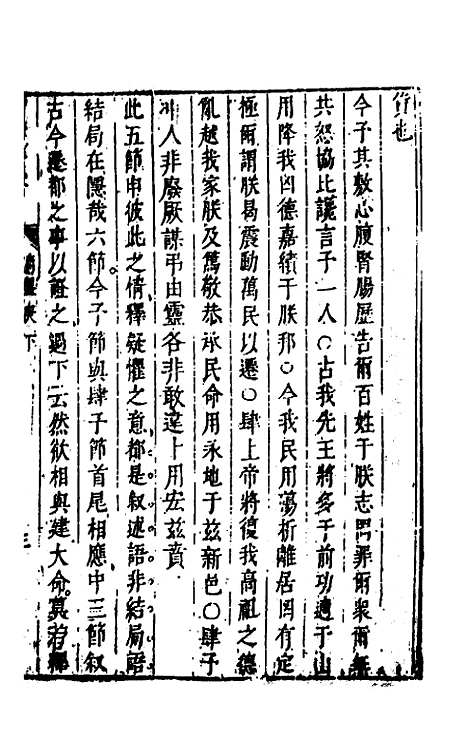 行也
今予其敷心腹腎腸歷告爾百姓于朕志罔罪爾衆爾無
共怒協比讒言予一人○古我先王將多于前功適于山
用降我凶德嘉績于朕邦○今我民用蕩析離居罔有定
極爾謂朕曷震動萬民以遷○肆上帝將復我高祖之德
亂越我家朕及篤敬恭承民命用永地于茲新邑○肆予
沖人非廢厥謀弔由靈各非敢違卜用宏茲賁
此五節申彼此之情釋疑懼之意都是叙述語非結局語
結局在隱哉六節今予節與肆予節首尾相應中三節叙
古今遷都之事以証之過下云然欲相與建大命莫若釋
下
三